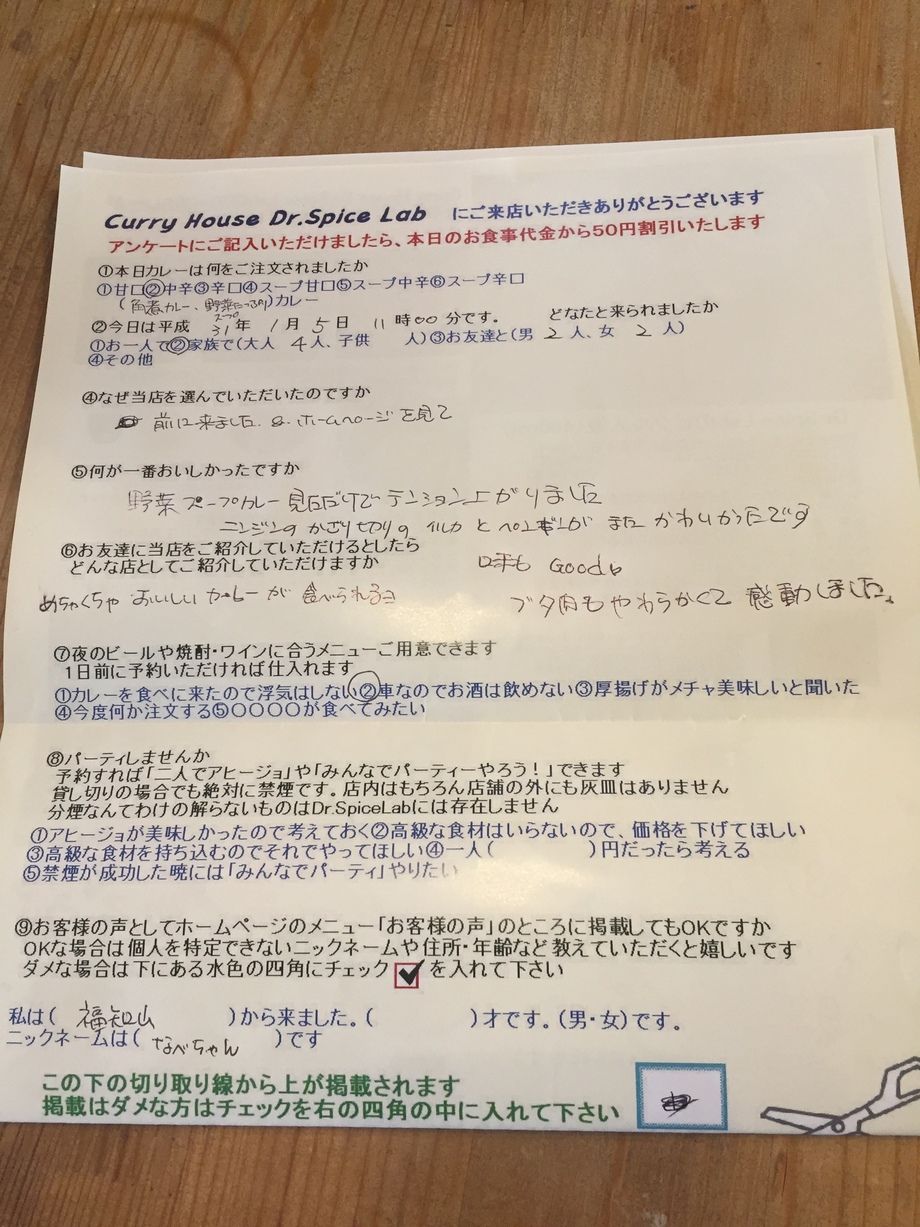 Curry House Dr.Spice Lab にご来店いただきありがとうございます
アンケートにご記入いただけましたら、本日のお食事代金から50円割引いたします
①本日カレーは何をご注文されましたか
①甘口②中辛③辛口④スープ甘口⑤スープ中辛⑥スープ辛口
(角煮カレー、野菜たっぷり)カレー
スープ
②今日は平成 31年 1月 5日 11時00分です。 どなたと来られましたか
①お一人で②家族で(大人 4人、子供 人)③お友達と(男 2人、女 2人)
④その他
④なぜ当店を選んでいただいたのですか
前に来ました & ホームページを見て
⑤何が一番おいしかったですか
野菜スープカレー 見ただけでテンション上がりました
ニンジンのかざり切りのイルカとペンギンがまたかわいかったです
⑥お友達に当店をご紹介していただけるとしたら
どんな店としてご紹介していただけますか
味も Good。
めちゃくちゃおいしいカレーが食べられるヨ
ブタ肉もやわらかくて感動しました。
⑦夜のビールや焼酎・ワインに合うメニューご用意できます
1日前に予約いただければ仕入れます
①カレーを食べに来たので浮気はしない②車なのでお酒は飲めない③厚揚げがメチャ美味しいと聞いた
④今度何か注文する⑤○○○○が食べてみたい
⑧パーティしませんか
予約すれば「二人でアヒージョ」や「みんなでパーティーやろう!」できます
貸し切りの場合でも絶対に禁煙です。店内はもちろん店舗の外にも灰皿はありません
分煙なんてわけの解らないものはDr.SpiceLabには存在しません
①アヒージョが美味しかったので考えておく②高級な食材はいらないので、価格を下げてほしい
③高級な食材を持ち込むのでそれでやってほしい④一人( )円だったら考える
⑤禁煙が成功した暁には「みんなでパーティ」やりたい
⑨お客様の声としてホームページのメニュー「お客様の声」のところに掲載してもOKですか
OKな場合は個人を特定できないニックネームや住所・年齢など教えていただくと嬉しいです
ダメな場合は下にある水色の四角にチェック を入れて下さい
私は( 福知山 )から来ました。( )才です。(男・女)です。
ニックネームは( なべちゃん )です
この下の切り取り線から上が掲載されます
掲載はダメな方はチェックを右の四角の中に入れて下さい